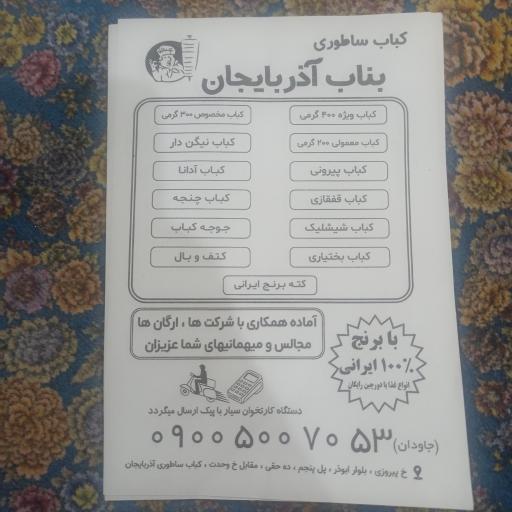 کباب ساطوری
بناب آذربایجان
کباب ویژه ۴۰۰ گرمی
کباب مخصوص ۳۰۰ گرمی
کباب معمولی ۲۰۰ گرمی
کباب نیگن دار
کباب پیرونی
کباب آدانا
کباب قفقازی
کباب چنجه
کباب شیشلیک
جوجه کباب
کباب بختیاری
کتف و بال
کته برنج ایرانی
آماده همکاری با شرکت ها ، ارگان ها
مجالس و میهمانیهای شما عزیزان
با برنج
۱۰۰٪ ایرانی
انواع غذا با دورچین رایگان
دستگاه کارتخوان سیار با پیک ارسال میگردد
۰۹۰۰ ۵۰۰ ۷۰ ۵۳ (جاودان)
خ پیروزی ، بلوار ابوذر ، پل پنجم ، ده حقی ، مقابل خ وحدت ، کباب ساطوری آذربایجان